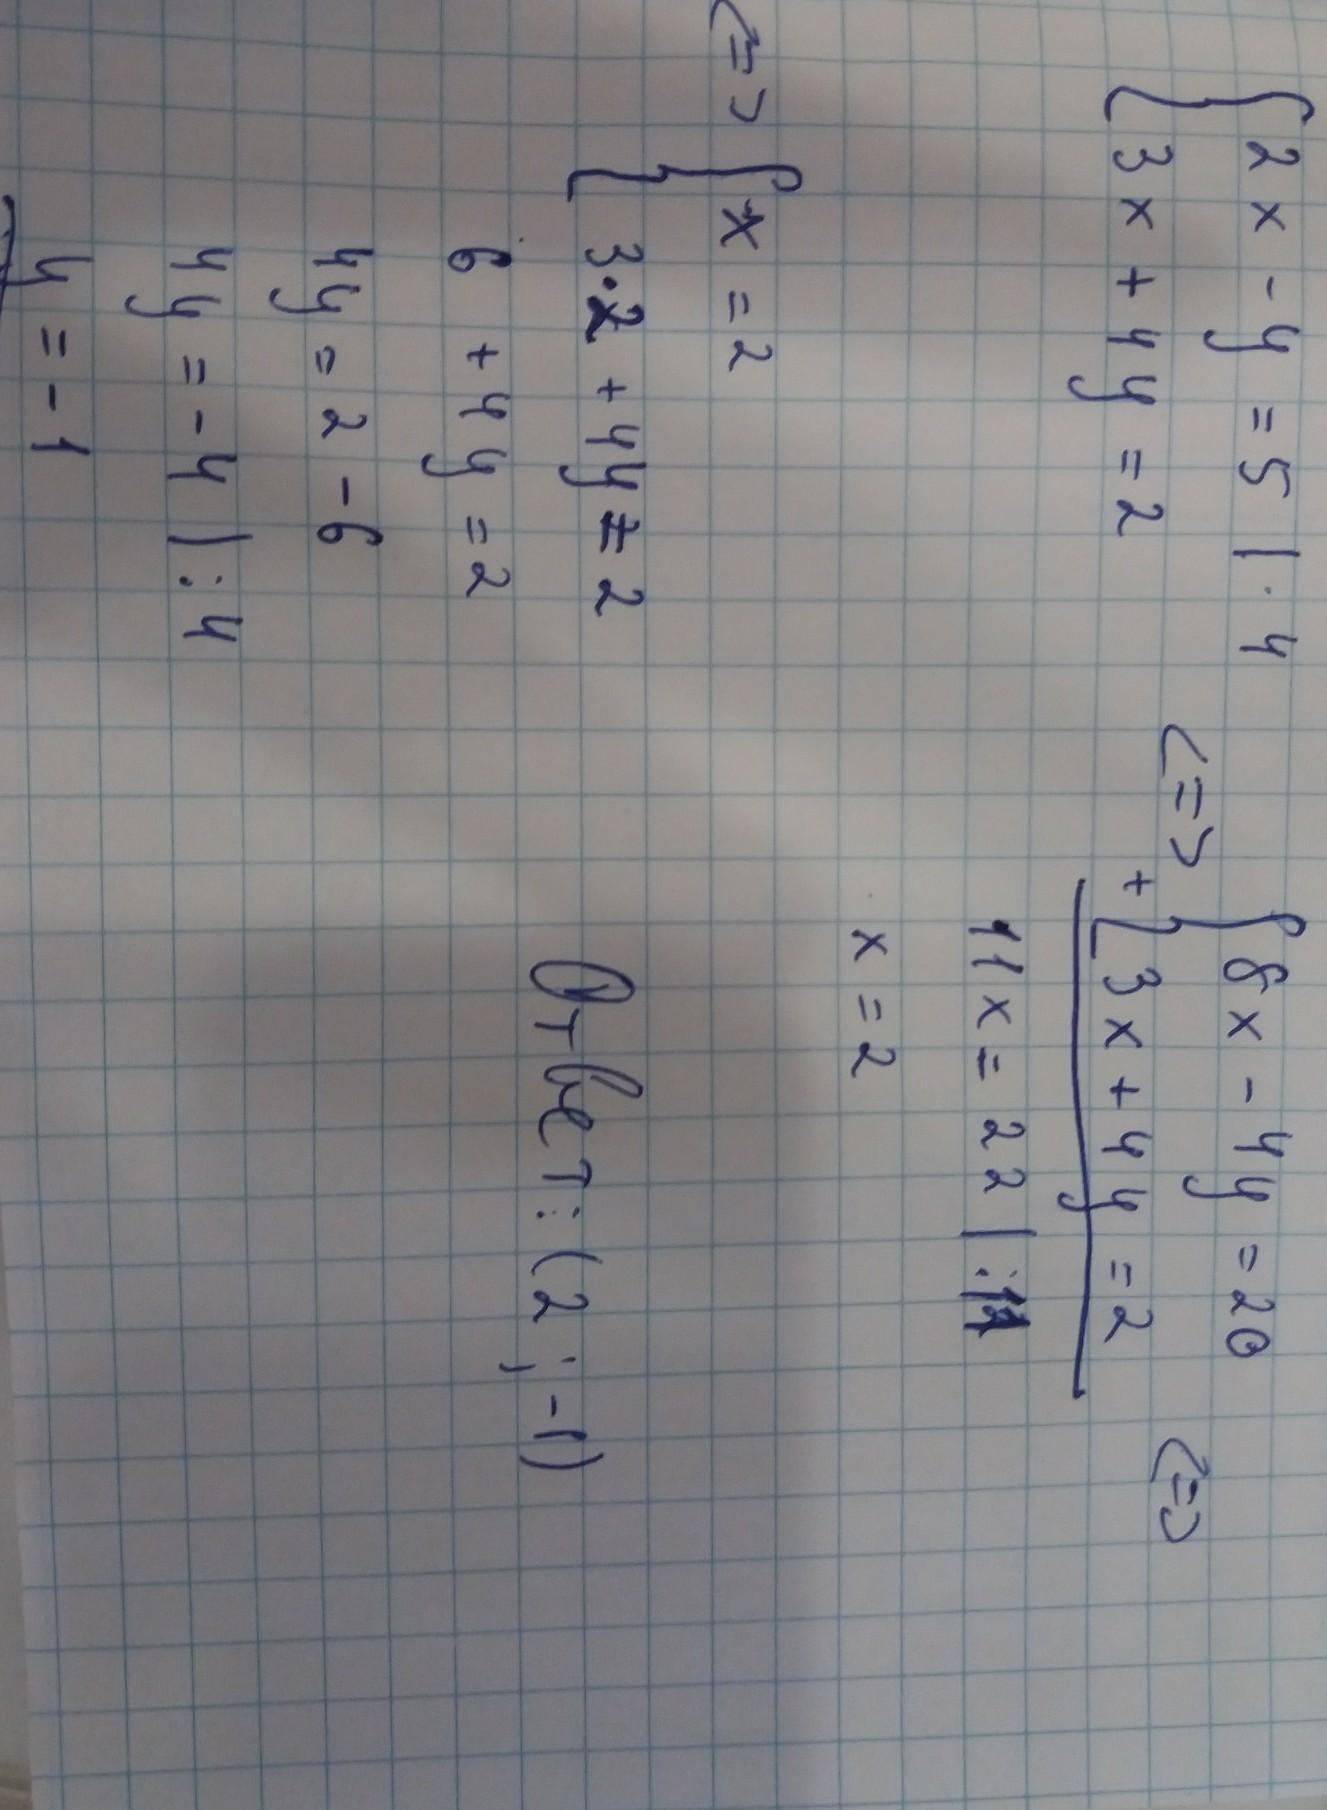 { 2x - y = 5 | · 4
{ 3x + 4y = 2
<=>
+ { 8x - 4y = 20
{ 3x + 4y = 2
<=>
11x = 22 | : 11
x = 2
<=>
{ x = 2
{ 3·2 + 4y = 2
6 + 4y = 2
4y = 2 - 6
4y = -4 | : 4
y = -1
Ответ: (2 ; -1)